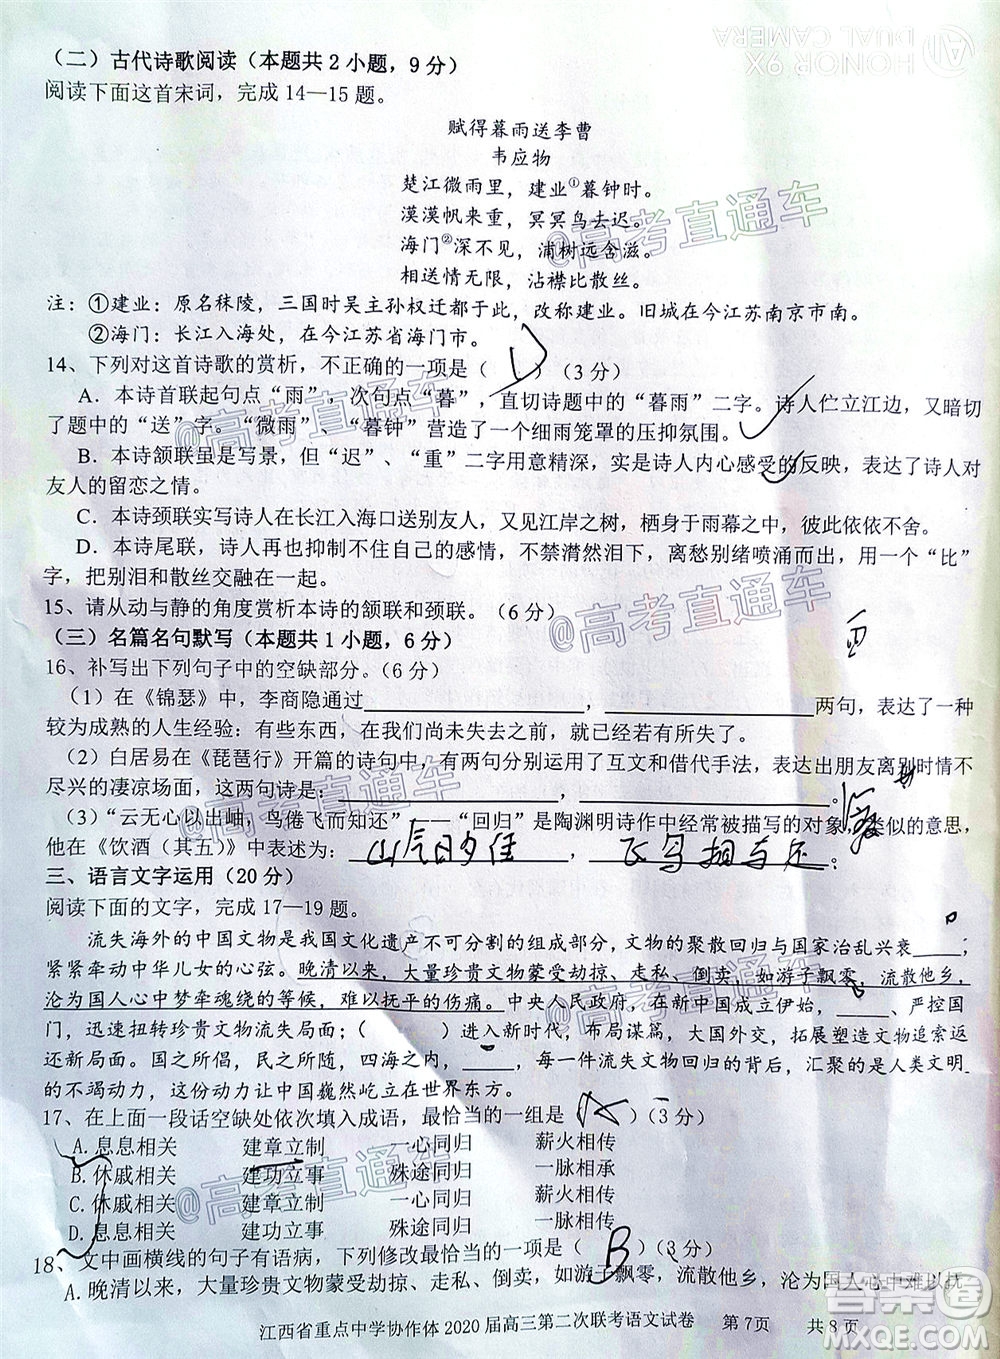 AI DUAL CAMERA
HONOR 9X
（二）古代诗歌阅读（本题共2小题，9分）
阅读下面这首宋词，完成14—15题。
赋得暮雨送李曹
韦应物
楚江微雨里，建业①暮钟时。
漠漠帆来重，冥冥鸟去迟。
海门②深不见，浦树远含滋。
相送情无限，沾襟比散丝。
注：①建业：原名秣陵，三国时吴主孙权迁都于此，改称建业。旧城在今江苏南京市南。
②海门：长江入海处，在今江苏省海门市。
14、下列对这首诗歌的赏析，不正确的一项是（ ）（3分）
A．本诗首联起句点“雨”，次句点“暮”，直切诗题中的“暮雨”二字。诗人伫立江边，又暗切了题中的“送”字。“微雨”、“暮钟”营造了一个细雨笼罩的压抑氛围。
B．本诗颔联虽是写景，但“迟”、“重”二字用意精深，实是诗人内心感受的反映，表达了诗人对友人的留恋之情。
C．本诗颈联实写诗人在长江入海口送别友人，又见江岸之树，栖身于雨幕之中，彼此依依不舍。
D．本诗尾联，诗人再也抑制不住自己的感情，不禁潸然泪下，离愁别绪喷涌而出，用一个“比”字，把别泪和散丝交融在一起。
15、请从动与静的角度赏析本诗的颔联和颈联。（6分）
（三）名篇名句默写（本题共1小题，6分）
16、补写出下列句子中的空缺部分。（6分）
（1）在《锦瑟》中，李商隐通过____，____两句，表达了一种较为成熟的人生经验：有些东西，在我们尚未失去之前，就已经没有着落。
（2）白居易在《琵琶行》开篇的诗句中，有两句分别运用了互文和借代手法，表达出朋友离别时情景不尽兴的凄凉场面，这两句诗是：____，____。
（3）“云无心以出岫，鸟倦飞而知还”——“回归”是陶渊明诗作中经常被描写的对象，类似的意思，他在《饮酒（其五）》中表述为：山气日夕佳，飞鸟相与还；
三、语言文字运用（20分）
阅读下面的文字，完成17—19题。
流失海外的中国文物是我国文化遗产不可分割的组成部分，文物的聚散回归与国家治乱兴衰____，
紧紧牵动中华儿女的心弦。晚清以来，大量珍贵文物蒙受劫掠、走私、倒卖，如游子飘零，流散他乡，
沦为国人心中梦牵魂绕的等候，难以抚平的伤痛。中央人民政府，在新中国成立伊始，____、严控国
门，迅速扭转珍贵文物流失局面；（ ）进入新时代，布局谋篇，大国外交，拓展塑造文物追索返
还新局面。国之所倡，民之所盼，四海之内，____，每一件流失文物回归的背后，汇聚的是人类文明____
的不竭动力，这些都是让中国巍然屹立在世界东方。
17、在上面一段话空缺处依次填入成语，最恰当的一组是（ ）（3分）
A. 息息相关 建章立制 一心同归 薪火相传
B. 休戚相关 建功立事 殊途同归 一脉相承
C. 休戚相关 建章立制 一心同归 薪火相传
D. 息息相关 建功立事 殊途同归 一脉相传
18、文中画横线的句子有语病，下列修改最恰当的一项是（ B ）（3分）
A. 晚清以来，大量珍贵文物蒙受劫掠、走私、倒卖，如游子飘零，流散他乡，沦为国人心中难以抚
江西省重点中学协作体2020届高三第二次联考语文试卷 第7页 共8页
@高考直通车
答案圈
MXQE.COM